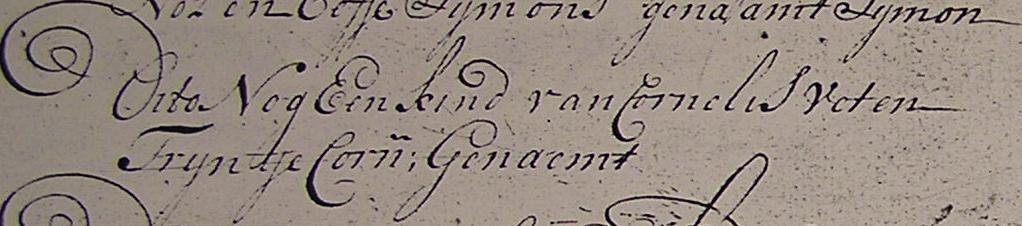 en Symons genaamt Symon
Dito Nog Een kind van Cornelis Voten
Tryntje Corn: Genaemt